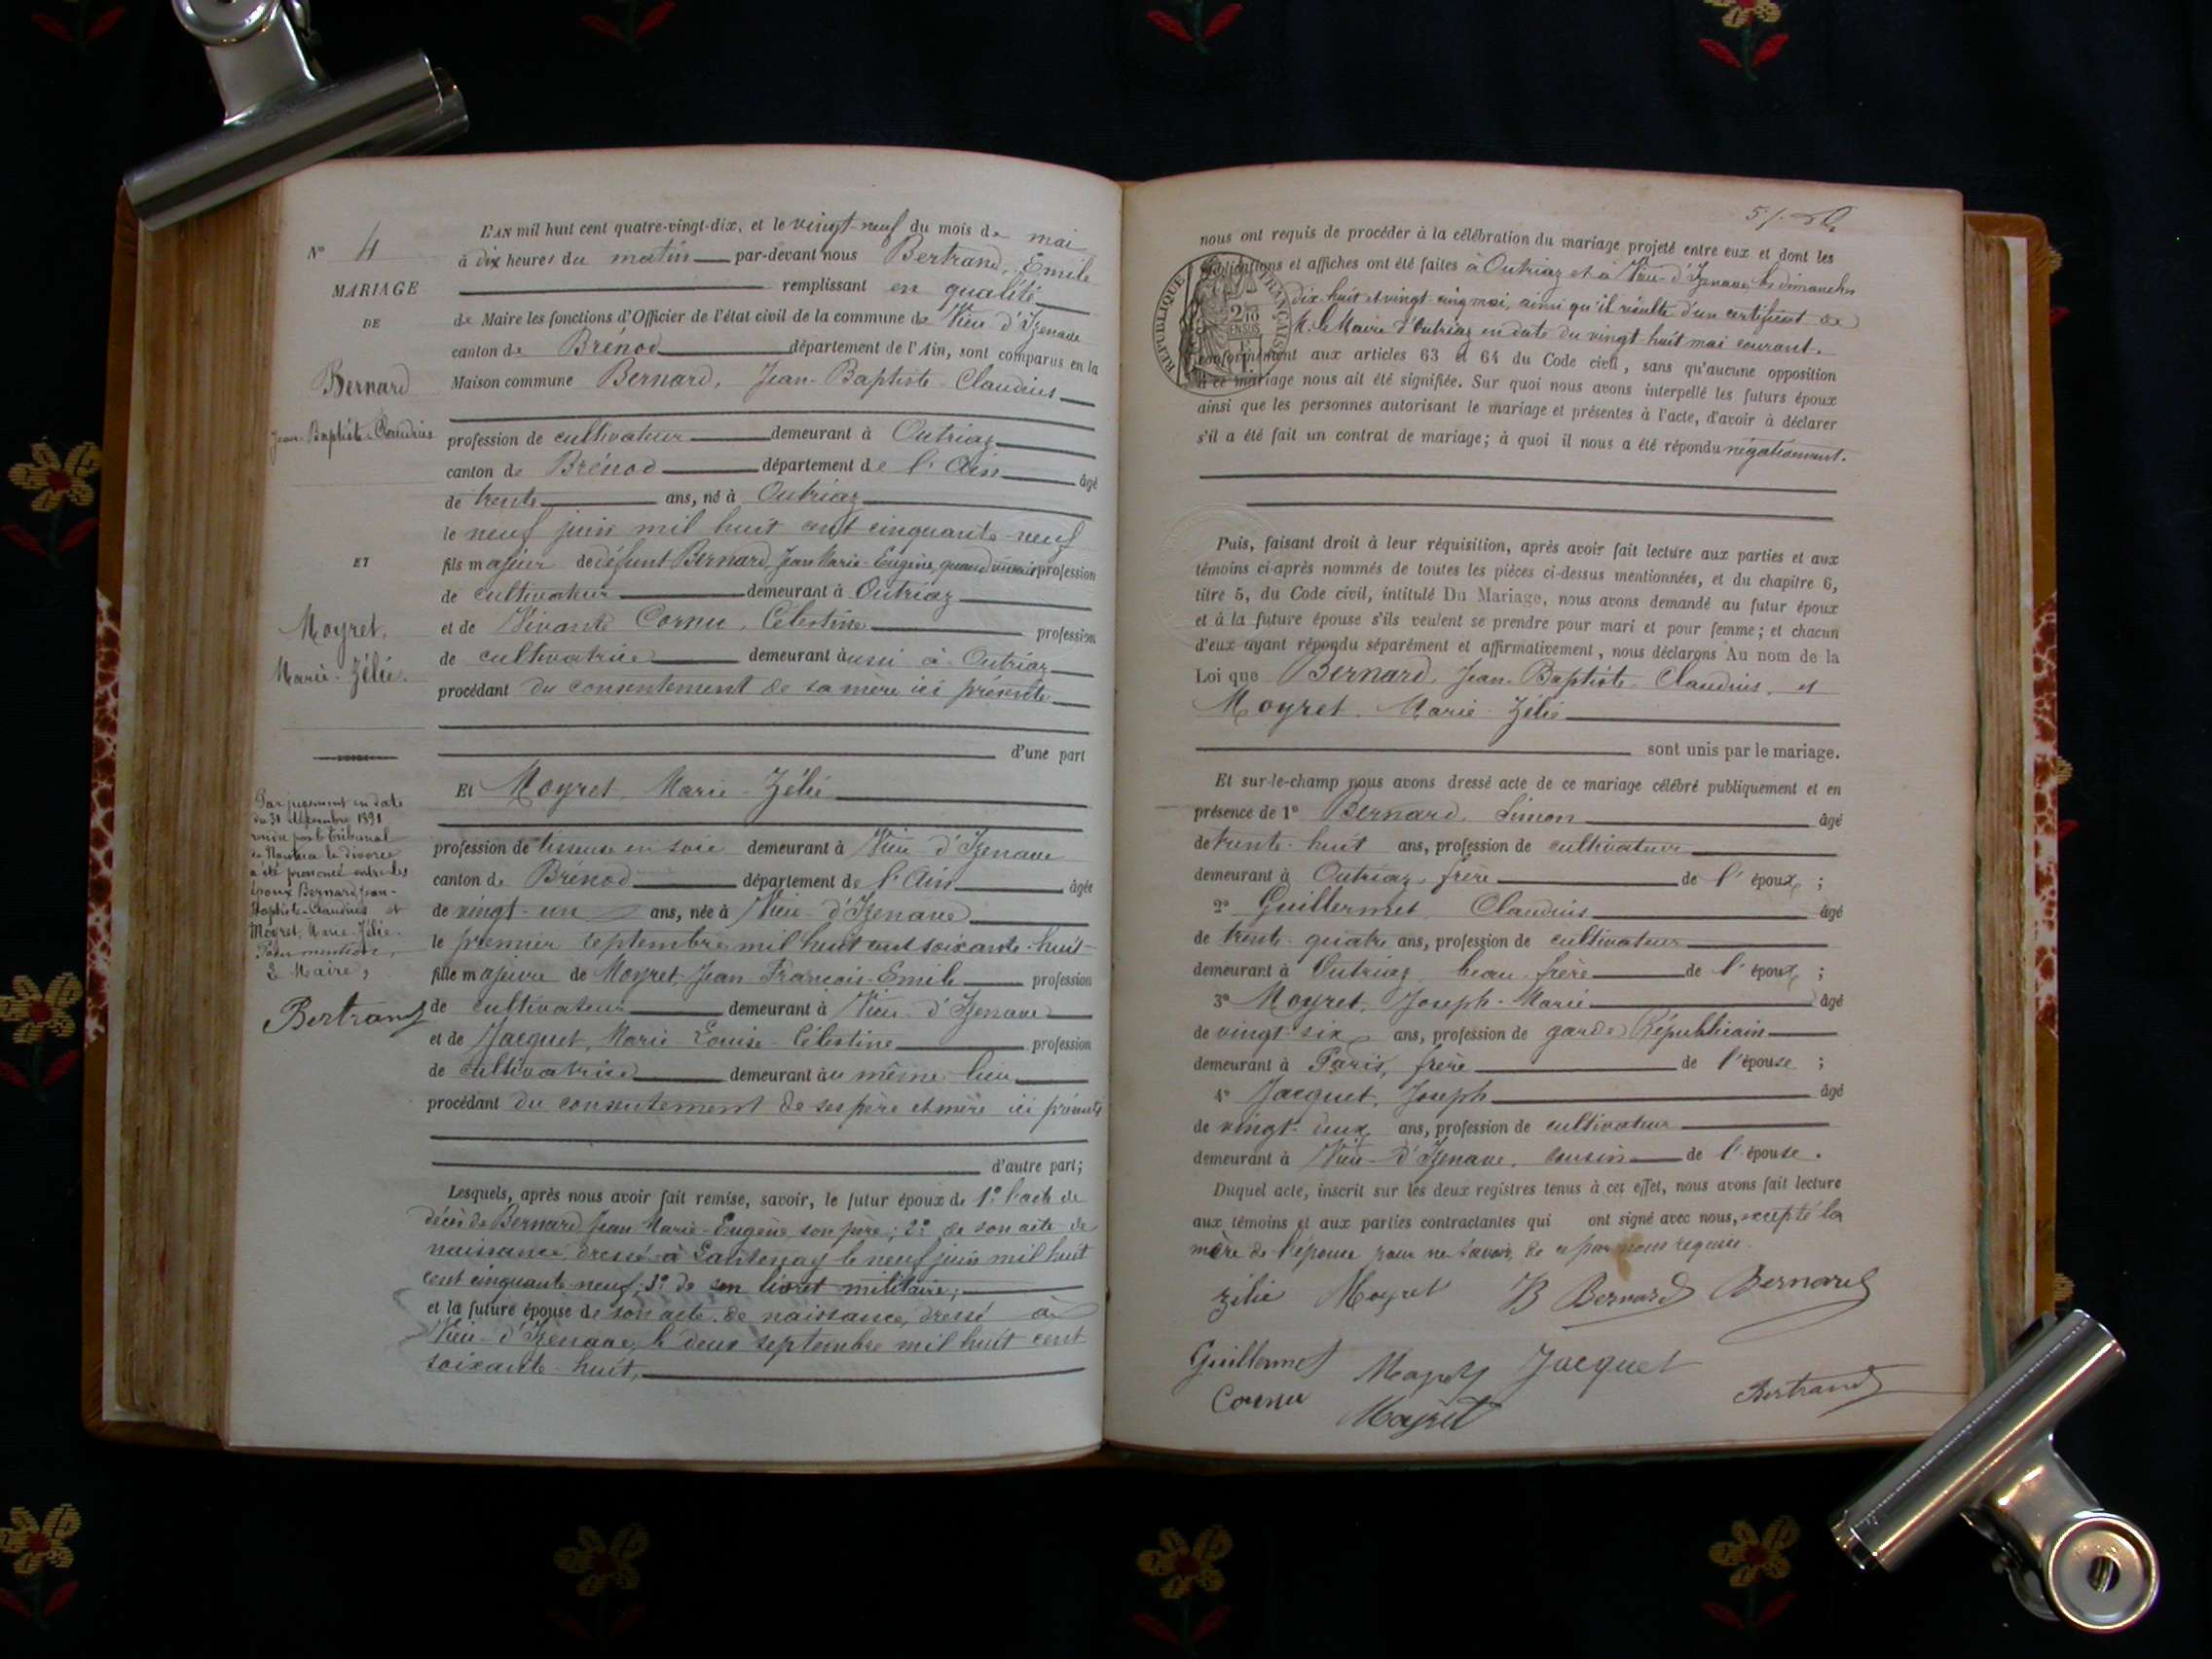 N° 4
MARIAGE
DE
Bernard
Jean-Baptiste-Claudius
ET
Moyret,
Marie-Zélie.
Par jugement en date
du 31 décembre 1891
rendu par le tribunal
de Nantua le divorce
a été prononcé entre les
époux Bernard, Jean-
Baptiste-Claudius et
Moyret, Marie-Zélie.
Pour mention,
Le Maire,
Bertrand
L'AN mil huit cent quatre-vingt-dix, et le vingt-neuf du mois de mai
à dix heures du matin par-devant nous Bertrand, Emile
remplissant en qualité
de Maire les fonctions d'Officier de l'état civil de la commune de Vieu d'Izenave
canton de Brénod département de l'Ain, sont comparus en la
Maison commune Bernard, Jean-Baptiste-Claudius
profession de cultivateur demeurant à Outriaz
canton de Brénod département de l'Ain âgé
de trente ans, né à Outriaz
le neuf juin mil huit cent cinquante-neuf
fils majeur de défunt Bernard, Jean Marie-Eugène, quand vivait profession
de cultivateur demeurant à Outriaz
et de Vivante Cornu, Célestine profession
de cultivatrice demeurant aussi à Outriaz
procédant du consentement de sa mère ici présente
d'une part
Et Moyret, Marie-Zélie
profession de tisseuse en soie demeurant à Vieu d'Izenave
canton de Brénod département de l'Ain âgée
de vingt-un ans, née à Vieu-d'Izenave
le premier septembre mil huit cent soixante-huit
fille majeure de Moyret, Jean François-Emile profession
de cultivateur demeurant à Vieu-d'Izenave
et de Jacquet, Marie-Louise-Célestine profession
de cultivatrice demeurant au même lieu
procédant du consentement de ses père et mère ici présents
d'autre part;
Lesquels, après nous avoir fait remise, savoir, le futur époux de 1° l'acte de
décès de Bernard Jean Marie-Eugène, son père; 2° de son acte de
naissance dressé à Lantenay le neuf juin mil huit
cent cinquante-neuf; 3° de son livret militaire;
et la future épouse de son acte de naissance, dressé à
Vieu-d'Izenave, le deux septembre mil huit cent
soixante-huit,
nous ont requis de procéder à la célébration du mariage projeté entre eux et dont les
publications et affiches ont été faites à Outriaz et à Vieu-d'Izenave les dimanches
dix-huit et vingt-cinq mai, ainsi qu'il résulte d'un certificat de
M. le Maire d'Outriaz en date du vingt-huit mai courant.
RÉPUBLIQUE FRANÇAISE
2/10 EN SUS
conformément aux articles 63 et 64 du Code civil, sans qu'aucune opposition
à ce mariage nous ait été signifiée. Sur quoi nous avons interpellé les futurs époux
ainsi que les personnes autorisant le mariage et présentes à l'acte, d'avoir à déclarer
s'il a été fait un contrat de mariage; à quoi il nous a été répondu négativement.
Puis, faisant droit à leur réquisition, après avoir fait lecture aux parties et aux
témoins ci-après nommés de toutes les pièces ci-dessus mentionnées, et du chapitre 6,
titre 5, du Code civil, intitulé Du Mariage, nous avons demandé au futur époux
et à la future épouse s'ils veulent se prendre pour mari et pour femme; et chacun
d'eux ayant répondu séparément et affirmativement, nous déclarons Au nom de la
Loi que Bernard, Jean-Baptiste-Claudius, et
Moyret, Marie-Zélie
sont unis par le mariage.
Et sur-le-champ nous avons dressé acte de ce mariage célébré publiquement et en
présence de 1° Bernard, Simon âgé
de trente-huit ans, profession de cultivateur
demeurant à Outriaz, frère de l'époux;
2° Guillermet, Claudius âgé
de trente-quatre ans, profession de cultivateur
demeurant à Outriaz, beau-frère de l'époux;
3° Moyret, Joseph-Marie âgé
de vingt-six ans, profession de garde Républicain
demeurant à Paris, frère de l'épouse;
4° Jacquet, Joseph âgé
de vingt-deux ans, profession de cultivateur
demeurant à Vieu-d'Izenave, cousin de l'épouse.
Duquel acte, inscrit sur les deux registres tenus à cet effet, nous avons fait lecture
aux témoins et aux parties contractantes qui ont signé avec nous, excepté la
mère de l'épouse pour ne savoir, de ce par nous requise.
Zélie Moyret JB Bernard Bernard
Guillermet Moyret Jacquet
Cornu Moyret Bertrand